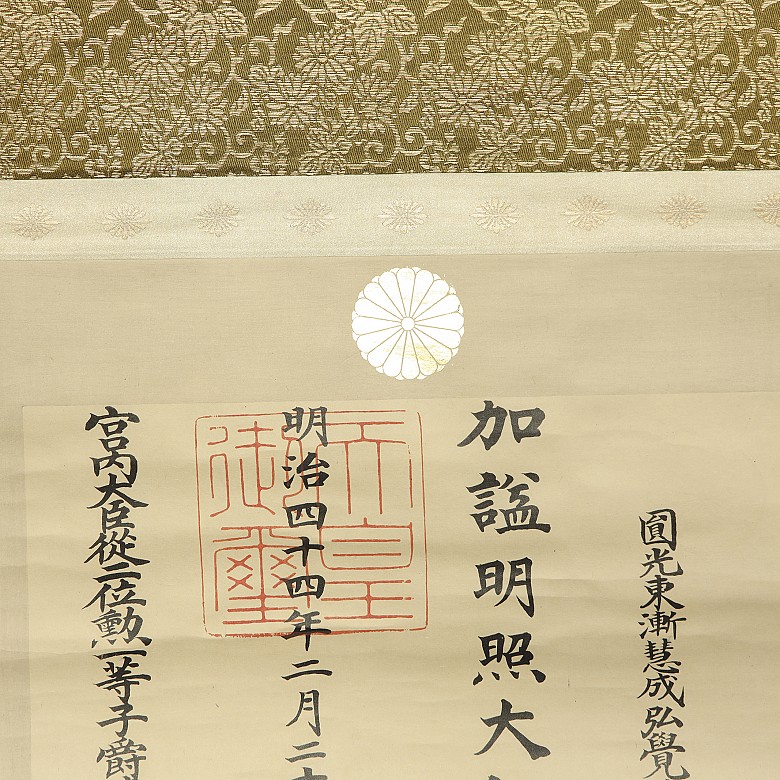 圓光東漸慧成弘覺
加諡明照大
明治四十四年二月二十
天皇御璽
宮內大臣從二位勳一等子爵